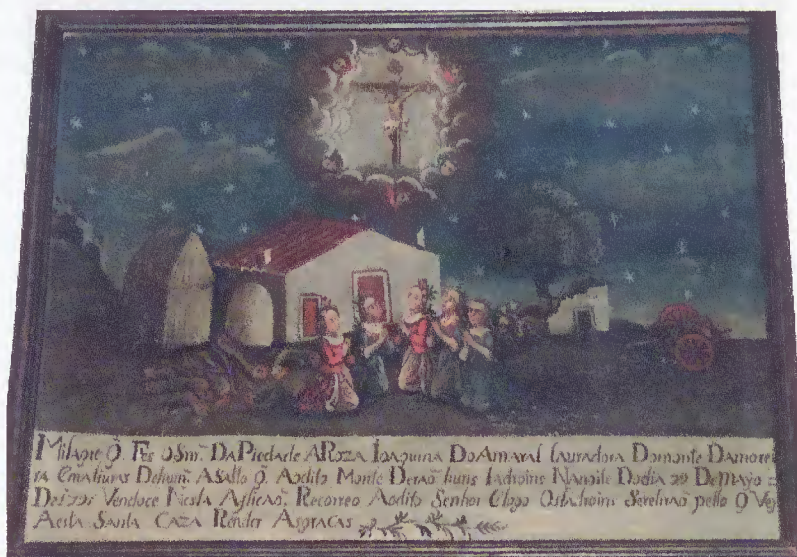 Milagre Q̃ Fes O Snr̃. Da Piedade A Roza Ioaquina Do Amaral Lauradora Do monte Damorei
ra Em alturas De hum̃ Asalto Q̃. Ao dito Monte Deraõ huns ladroins Na noite Do dia 29 De Mayo
Vendoce Nesta Aflicaõ. Recorreo Ao dito Senhor E logo Os ladroins Se retiraõ pello Q̃ Vej
A esta Santa Caza Render As gracas